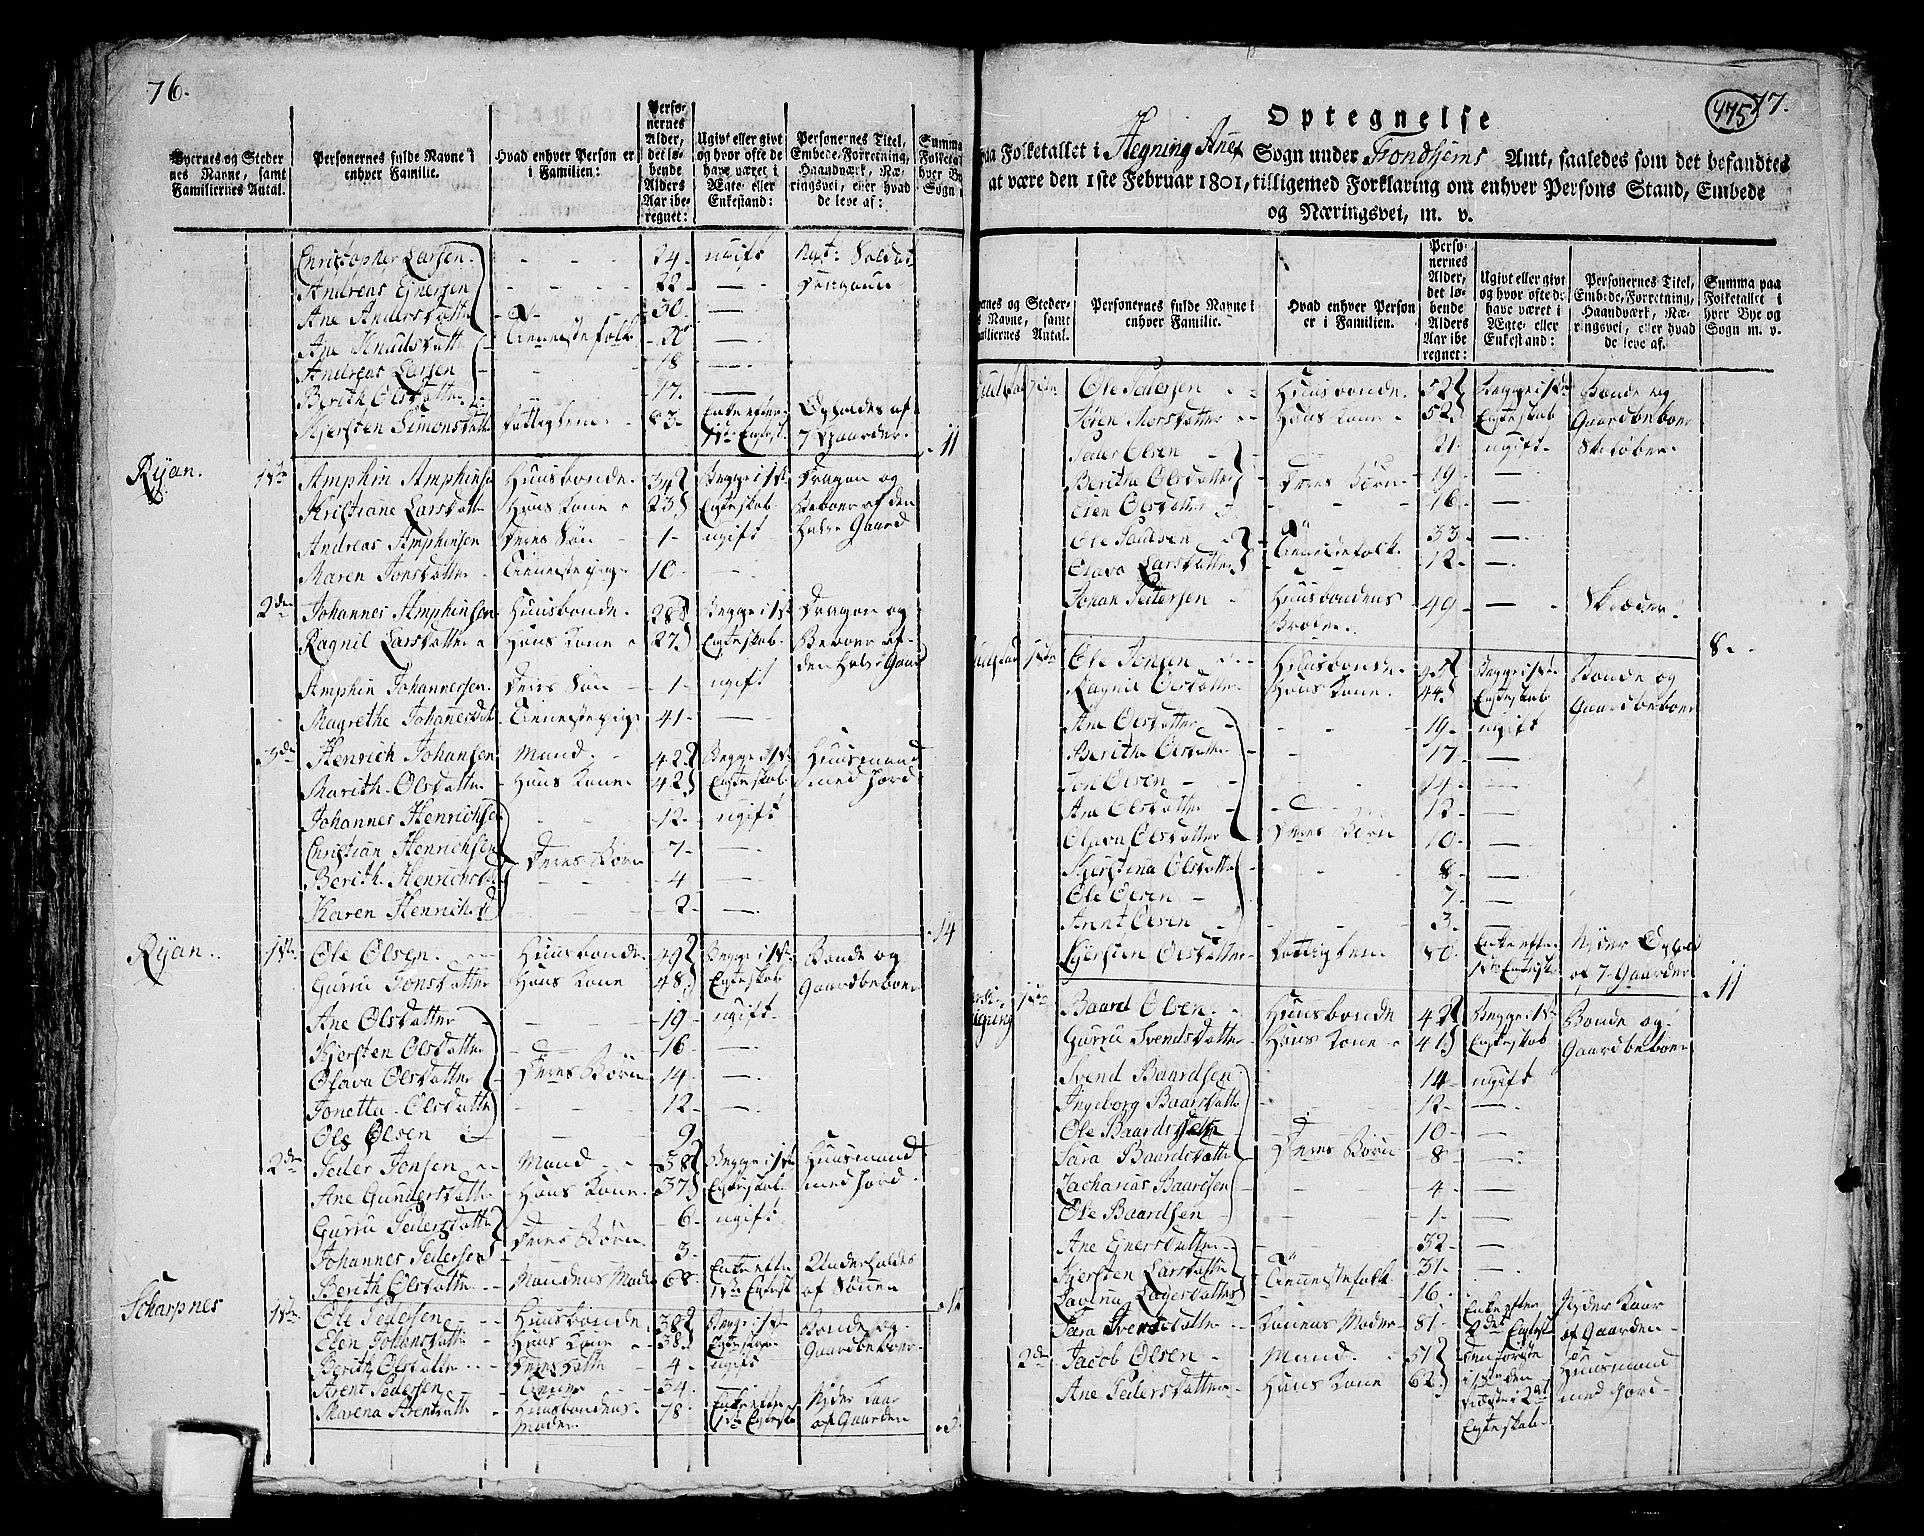 76.
Byernes og Steder
nes Navne, samt
Familiernes Antal.
Personernes fulde Navne i
enhver Familie.
Hvad enhver Person er
i Familien:
Perso-
nernes
Alder,
det lø-
bende
Alders
Aar ibe-
regnet:
Ugivt eller givt
og hvor ofte de
have været i
Ægte- eller
Enkestand:
Personernes Titel,
Embede, Forretning,
Haandværk, Næ-
ringsvei, eller hvad
de leve af:
Summa
Folketal
hver By
Sogn
Christopher Larsen - - - 24 - ugift Nat: Soldat
Andreas Ejnersen - - - 22 - Dragoun
Ane Andersdatter - 30 -
Ane Knudsdatter Tienestefolk - 20 -
Andreas Larsen - 18 -
Berith Olsdatter - 17 -
Kjersten Simonsdatter - 83 - Enke efter Opholdes af
1ste Egtesk. 7 Gaarder 11
Rÿan. 1ste Amphin Amphinsen Huusbonde 34 Begge i 1ste Dragon og
Kristiane Larsdatter Hans Kone 23 Egteskab Beboer af den
Andreas Amphinsen Deres Søn - 1 - ugift halve Gaard
Maren Jonsdatter Tienestepige 10 -
2den Johannes Amphinsen Huusbonde 28 Begge i 1ste Dragon og
Ragnil Larsdatter Hans Kone 27 Egteskab Beboer af
Amphin Johannesen Deres Søn - 1 - ugift den halve Gaard
Magrethe Johannesdatter Tienestepige 41 -
3die Henrich Johansen Mand 42 Begge i 1ste Huusmand
Marith Olsdatter Hans Kone 42 Egteskab med Jord
Johannes Henrichsen - 12 - ugift
Christian Henrichsen Deres Børn - 7 -
Berith Henrichsd - 4 -
Karen Henrichsd - 2 - 14
Rÿan. 1ste Ole Olsen Huusbonde 49 Begge i 1ste Bonde og
Guru Jonsdatter Hans Kone 48 Egteskab Gaardbeboer
Ane Olsdatter - 19 - ugift
Kjersten Olsdatter - 16 -
Olava Olsdatter Deres Børn 14 -
Jonetta Olsdatter - 12 -
Ole Olsen - 9
2den Peder Jonsen Mand 38 Begge i 1ste Huusmand
Ane Gundersdatter Hans Kone 37 Egteskab med Jord
Gurru Pedersdatter Deres Børn - 6 - ugift
Johannes Pedersen 3
Berith Olsdatter Mandens Moder 68 Enke efter Underholdes
1ste Egtesk. af Sønnen
Scharpnes 1ste Ole Pedersen Huusbonde 38 Begge i 1ste Bonde og
Elen Johansdatter Hans Kone 38 Egteskab Gaardbeboer
Berith Olsdatter Deres Datter - 4 - ugift
Arent Pedersen - 34 -
Marena Arentsdatter Huusbondens 78 Enke efter Nyder Kaar
Moder 1ste Egtesk. af Gaarden 5
475 77.
Optegnelse
paa Folketallet i Hegning Anex Sogn under Trondhjems Amt, saaledes som det befandtes
at være den 1ste Februar 1801, tilligemed Forklaring om enhver Persons Stand, Embede
og Næringsvei, m. v.
Byernes og Steder-
nes Navne, samt
Familiernes Antal.
Personernes fulde Navne i
enhver Familie.
Hvad enhver Person
er i Familien.
Perso-
nernes
Alder,
det lø-
bende
Alders
Aar ibe-
regnet:
Ugivt eller givt
og hvor ofte de
have været i
Ægte- eller
Enkestand:
Personernes Titel,
Embede, Forretning,
Haandværk, Næ-
ringsvei, eller hvad
de leve af.
Summa paa
Folketallet i
hver Bye og
Sogn m. v.
Ole Pedersen Huusbonde 52 Begge i 1ste Bonde og
Søren Morsdatter Hans Kone 52 Egteskab Gaardbeboer
Peder Olsen 21 ugift Skiløber
Beritha Olsdatter Deres Børn 19 -
Elen Olsdatter - 16 -
Ole Paulsen 33 -
Olava Larsdatter Tienestefolk 12 -
Jonan Pedersen Huusbondens 49 - Skræder
Broder 8
1ste Ole Jonsen Huusbonde 45 Begge i 1ste Bonde og
Ragnil Olsdatter Hans Kone 44 Egteskab Gaardbeboer
Ane Olsdatter - 19 - ugift
Beritha Olsdatter - 17 -
Jon Olsen - 14 -
Ane Olsdatter - 12 -
Olava Olsdatter Deres Børn 10 -
Kjerstina Olsdatter - 8 -
Ole Olsen - 7 -
Arnt Olsen - 3 -
Kjersten Olsdatter 80 Enke efter Nyder Ophold
1ste Egtesk. af 7 Gaarder 11
1ste Baard Olsen Huusbonde 42 Begge i 1ste Bonde og
Gurru Svendsdatter Hans Kone 41 Egteskab Gaardbeboer
Svend Baardsen 14 - ugift
Ingeborg Baarsdatter - 12 -
Ole Baards - 10 -
Sara Baardsdatter Deres Børn 8 -
Zacharias Baardsen - 4 -
Ole Baardsen - 1 -
Ane Ejnersdatter - 32 -
Kjersten Larsdatter Tienestefolk - 31 -
- 16 -
Sara Svendsdatter Konens Moder 81 Enke efter Nyder Kaar
2det Egtesk. af Gaarden
2den Jacob Olsen Mand 51 den første Huusmand
Ane Pedersdatter Hans Kone 62 i 1ste den med Jord
sidste i 2det
Egteskab